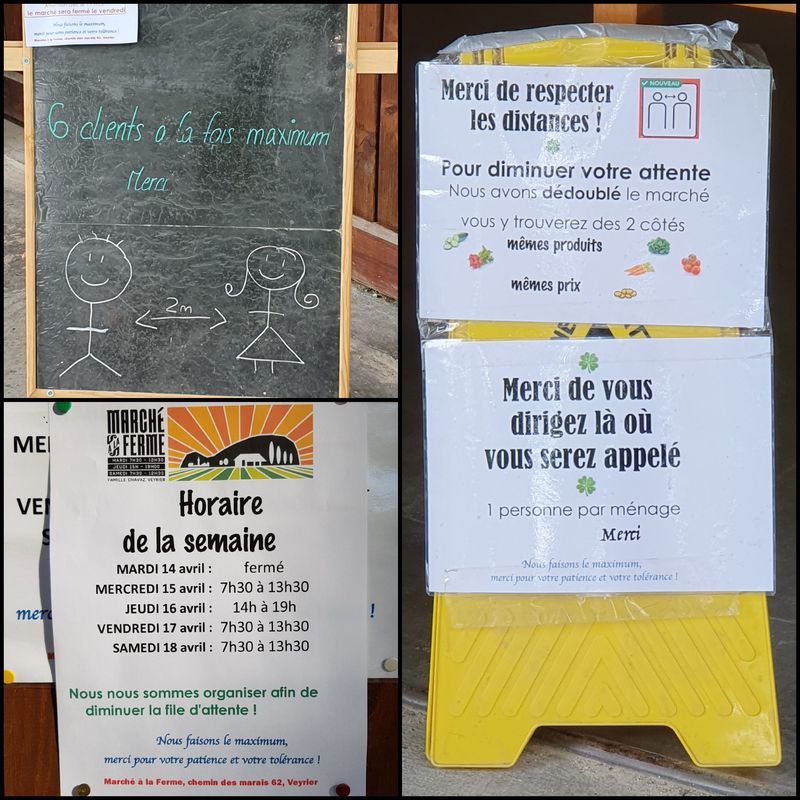 le marché sera fermé le vendredi
Nous faisons le maximum,
merci pour votre patience et votre tolérance !
Marché à la Ferme, chemin des marais 62, Veyrier
6 clients a la fois maximum
Merci
2m
MARCHÉ
FERME
MARDI 7H30 - 12H30
JEUDI 15H - 19H00
SAMEDI 7H30 - 12H30
FAMILLE CHAVAZ VEYRIER
Horaire
de la semaine
MARDI 14 avril : fermé
MERCREDI 15 avril : 7h30 à 13h30
JEUDI 16 avril : 14h à 19h
VENDREDI 17 avril : 7h30 à 13h30
SAMEDI 18 avril : 7h30 à 13h30
Nous nous sommes organiser afin de
diminuer la file d'attente !
Nous faisons le maximum,
merci pour votre patience et votre tolérance !
Marché à la Ferme, chemin des marais 62, Veyrier
Merci de respecter
les distances !
NOUVEAU
Pour diminuer votre attente
Nous avons dédoublé le marché
vous y trouverez des 2 côtés
mêmes produits
mêmes prix
Merci de vous
dirigez là où
vous serez appelé
1 personne par ménage
Merci
Nous faisons le maximum,
merci pour votre patience et votre tolérance !